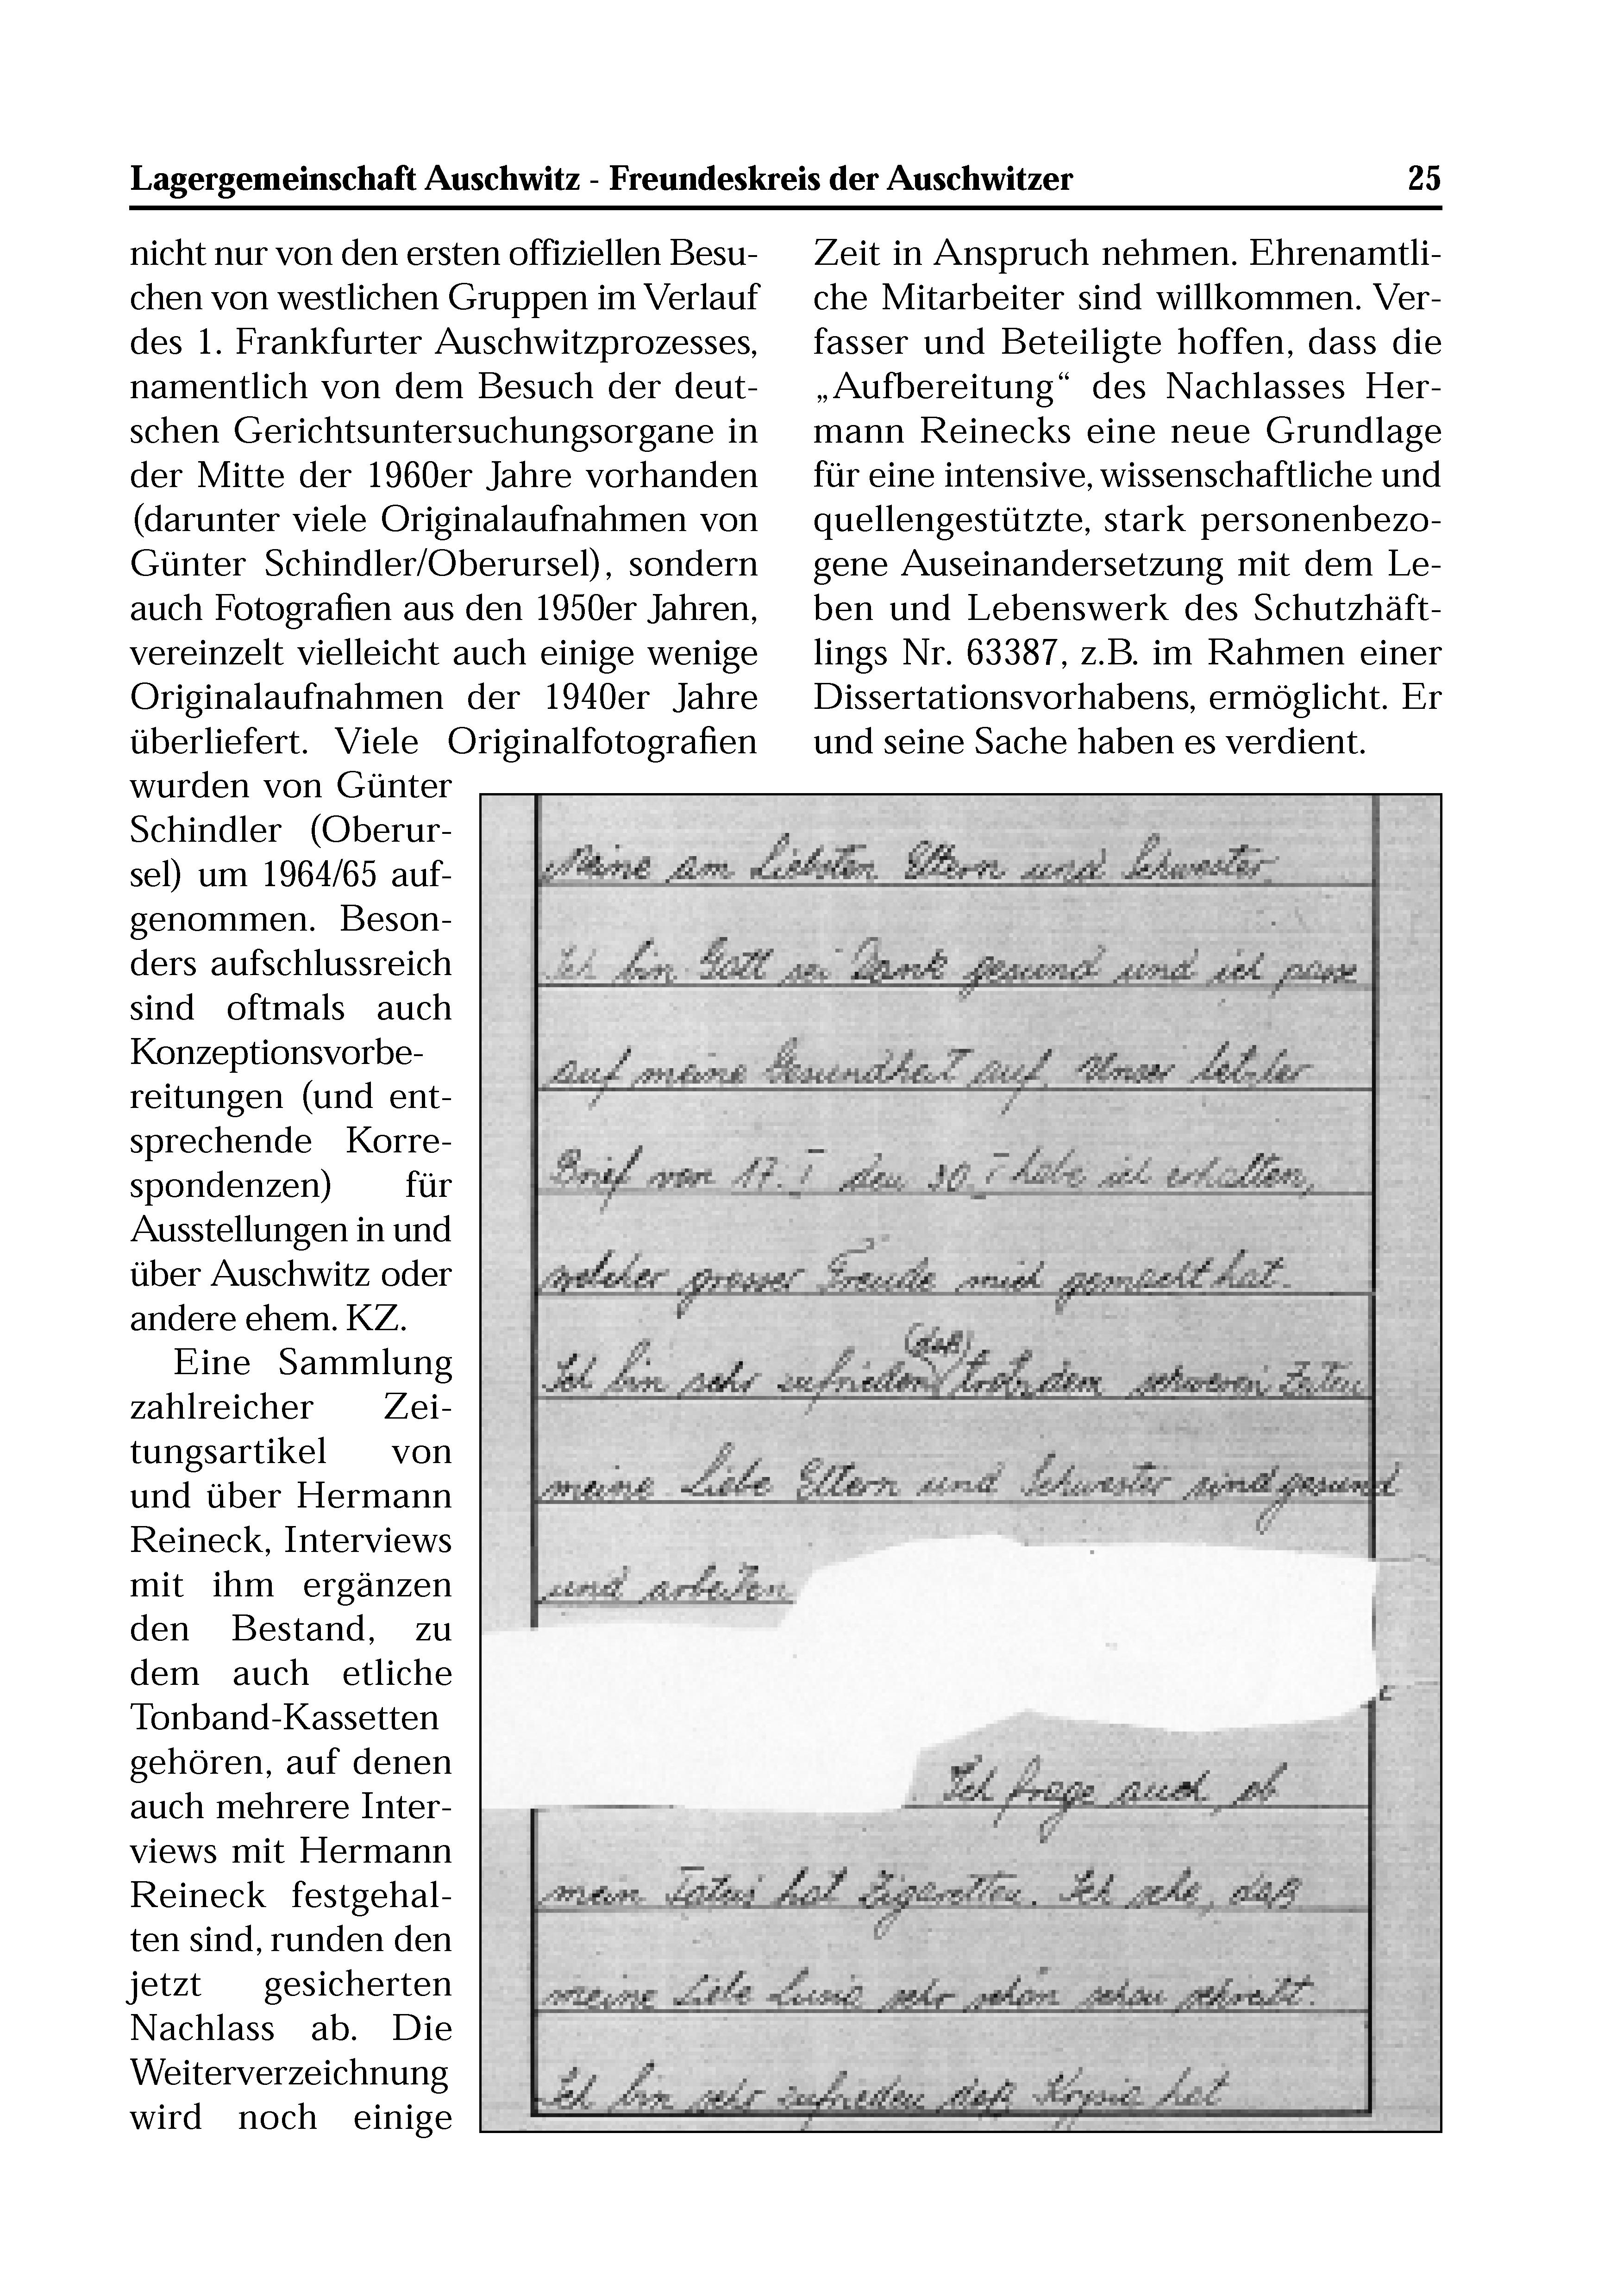 Lagergemeinschaft Auschwitz - Freundeskreis der Auschwitzer 25
nicht nur von den ersten offiziellen Besu-
chen von westlichen Gruppen im Verlauf
des 1. Frankfurter Auschwitzprozesses,
namentlich von dem Besuch der deut-
schen Gerichtsuntersuchungsorgane in
der Mitte der 1960er Jahre vorhanden
(darunter viele Originalaufnahmen von
Günter Schindler/Oberursel), sondern
auch Fotografien aus den 1950er Jahren,
vereinzelt vielleicht auch einige wenige
Originalaufnahmen der 1940er Jahre
überliefert. Viele Originalfotografien
wurden von Günter
Schindler (Oberur-
sel) um 1964/65 auf-
genommen. Beson-
ders aufschlussreich
sind oftmals auch
Konzeptionsvorbe-
reitungen (und ent-
sprechende Korre-
spondenzen) für
Ausstellungen in und
über Auschwitz oder
andere ehem. KZ.
Eine Sammlung
zahlreicher Zei-
tungsartikel von
und über Hermann
Reineck, Interviews
mit ihm ergänzen
den Bestand, zu
dem auch etliche
Tonband-Kassetten
gehören, auf denen
auch mehrere Inter-
views mit Hermann
Reineck festgehal-
ten sind, runden den
jetzt gesicherten
Nachlass ab. Die
Weiterverzeichnung
wird noch einige
Zeit in Anspruch nehmen. Ehrenamtli-
che Mitarbeiter sind willkommen. Ver-
fasser und Beteiligte hoffen, dass die
„Aufbereitung“ des Nachlasses Her-
mann Reinecks eine neue Grundlage
für eine intensive, wissenschaftliche und
quellengestützte, stark personenbezo-
gene Auseinandersetzung mit dem Le-
ben und Lebenswerk des Schutzhäft-
lings Nr. 63387, z.B. im Rahmen einer
Dissertationsvorhabens, ermöglicht. Er
und seine Sache haben es verdient.
Meine am Liebsten Eltern und Schwester
Ich bin Gott sei Dank gesund und ich passe
auf meine Gesundheit auf. Unser letzter
Brief von 17. I den 30. I habe ich erhalten,
welcher grosser Freude mich gemacht hat.
Ich bin sehr zufrieden (daß) trotz dem schweren Zeiten
meine Liebe Eltern und Schwester sind gesund
und arbeiten
Ich frage auch, ob
mein Tatuś hat Zigaretten. Ich sehe, daß
meine Liebe Lusia sehr schön schon schreibt.
Ich bin sehr zufrieden daß hat